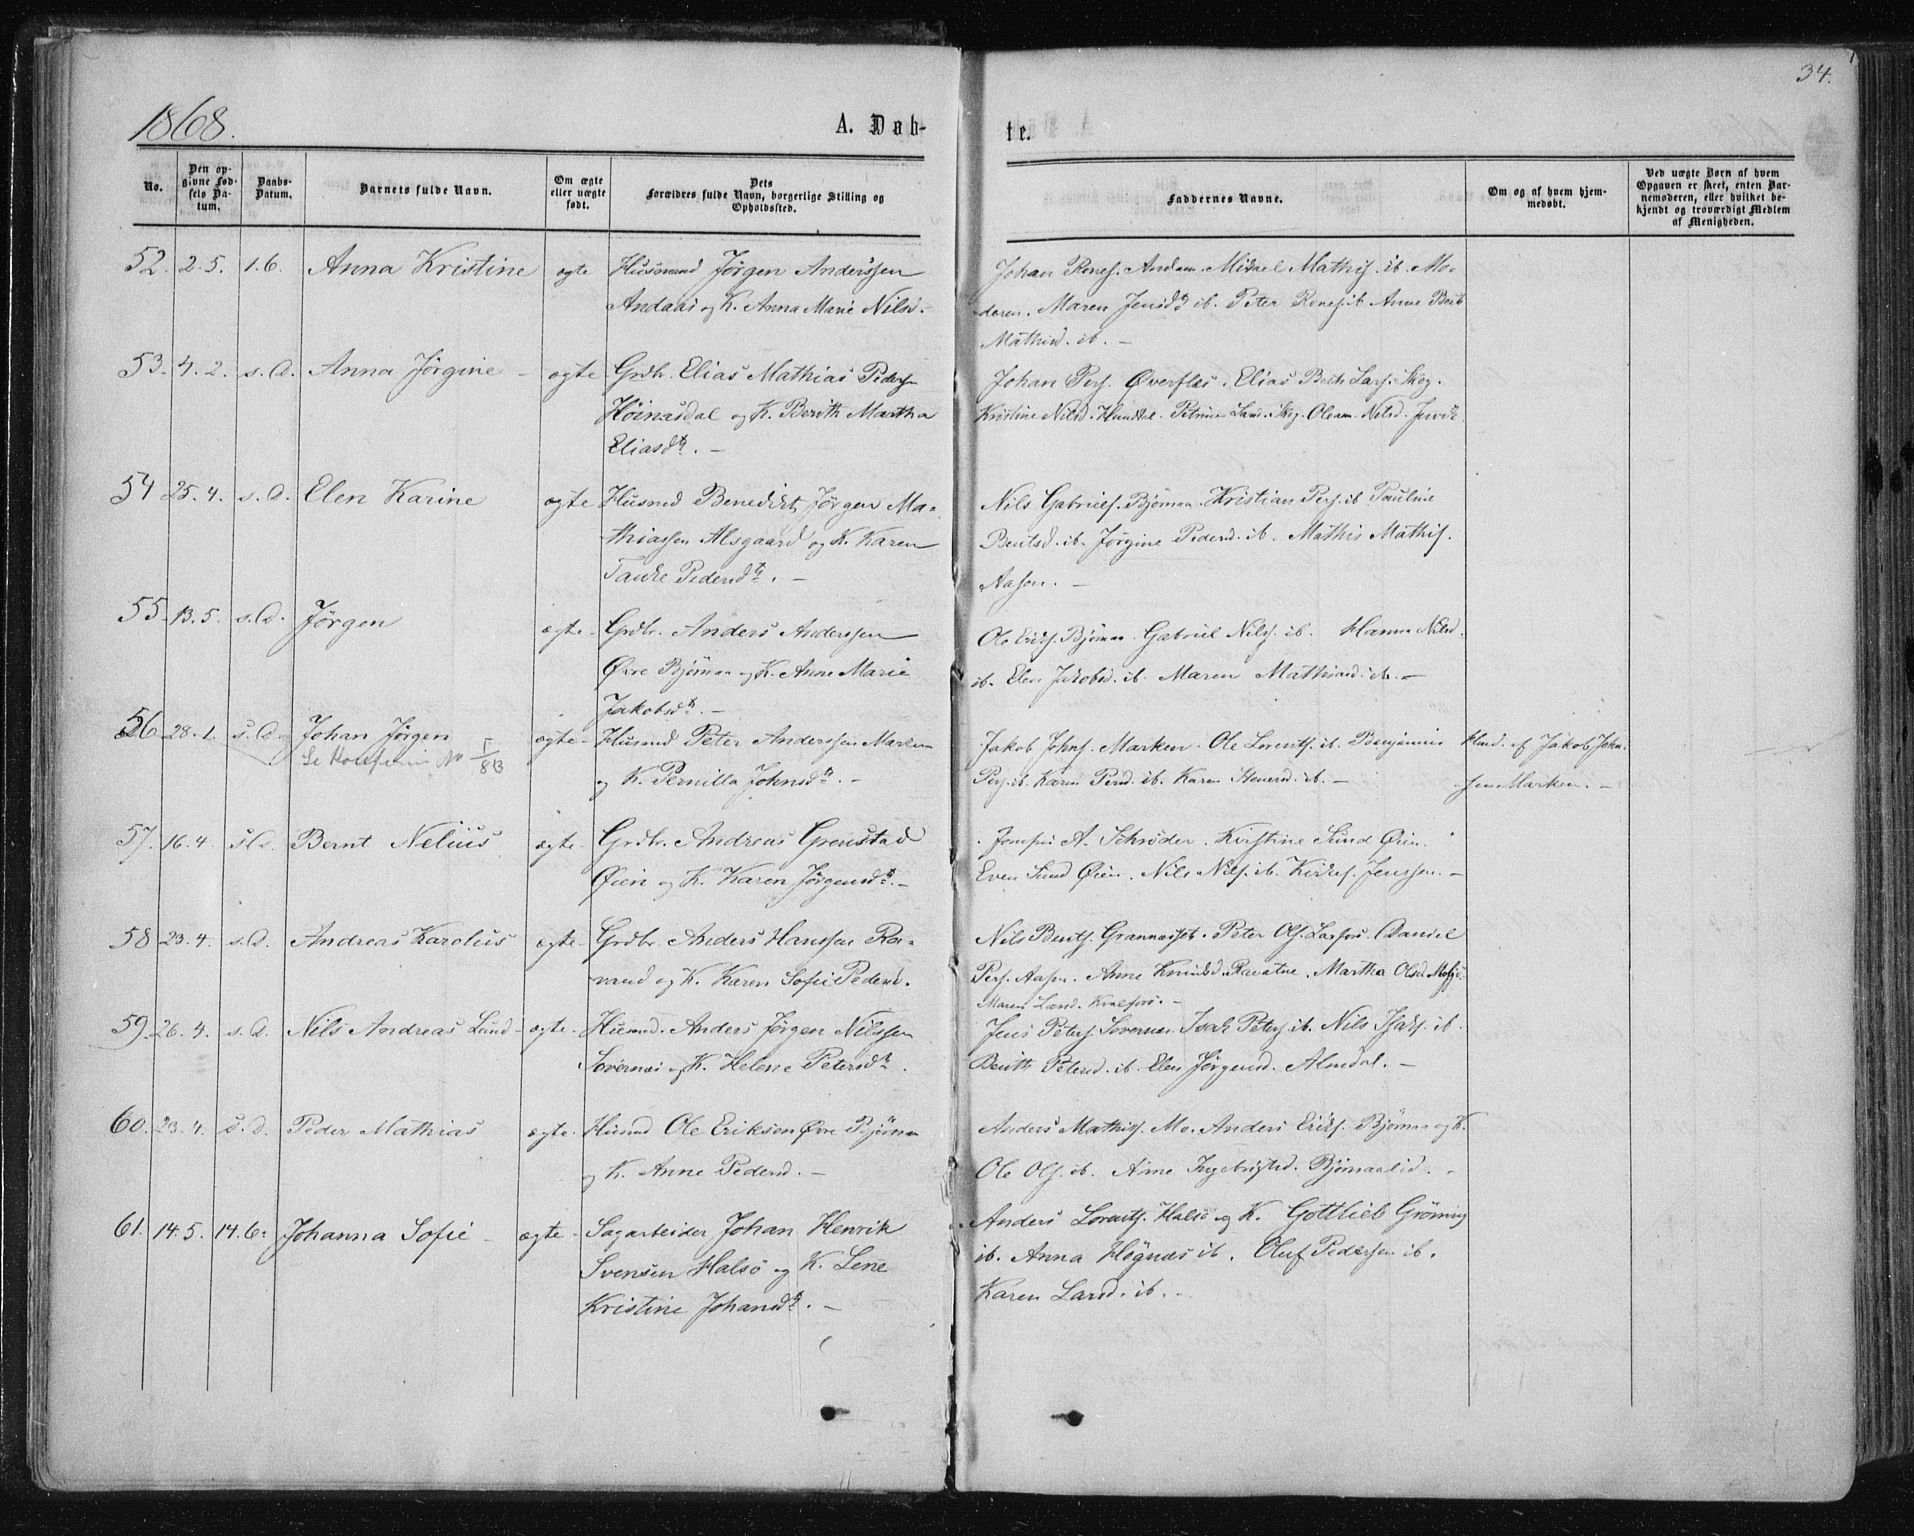 1868.
A. Døb-
te.
34.
No.
Den op-
givne Fød-
sels Da-
tum.
Daabs-
Datum.
Barnets fulde Navn.
Om ægte
eller uægte
født.
Dets
Forældres fulde Navn, borgerlige Stilling og
Opholdssted.
Faddernes Navne.
Om og af hvem hjem-
medøbt.
Ved uægte Børn af hvem
Opgaven er skeet, enten Bar-
nemoderen, eller hvilket be-
kjendt og troværdigt Medlem
af Menigheden.
52. 2.5. 1.6. Anna Kristine ægte Husmand Jørgen Anderssen
Andaas og K. Anna Marie Nilsd.-
Johan Rones. Andaas. Mikael Mathis. ib. Mo-
deren. Maren Jensd. ib. Peter Rones. ib. Anne Berit
Mathisd. ib. -
53. 4.2. s.d. Anna Jørgine - ægte Grdbr. Elias Mathias Peders.
Høinesdal og K. Berith Martha
Eliasdtr. -
Johan Pers. Øverfles. Elias Lars. Skog.
Kristine Nilsd. Petrine Larsd. Skog. Nilsd.
54 25.4. s.d. Elen Karine ægte Husmd Benedikt Jørgen Ma-
thiassen Alsgaard og K. Karen
Pedersdtr. -
Nils Gabriels. Bjørnaa. Kristian Pers. ib. Pauline
Bentsd. ib. Jørgine Pedersd. ib. Mathis Mathis.
Aasen. -
55. 13.5. s.d. Jørgen ægte. Grdbr. Anders Anderssen
Øvre Bjørnaa og K. Anne Marie
Jakobsdtr. -
Ole Eriks. Bjørnaa. Gabriel Nils. ib. Hanna Nilsd.
ib. Elen Jakobsd. ib. Maren Mathiasd. ib. -
56 28.1. s.d. Johan Jørgen ægte. Husmd Peter Anderssen Marken
og K. Pernilla Johnsdtr. -
Jakob Johns. Marken. Ole Lorents. ib. Benjamin
Pers. ib. Karen Persd. ib. Karen Stenersd. ib. -
Hmd. af Jakob John-
sen Marken. -
57. 16.4. s.d. Bernt Nelius ægte. Grdbr. Andreas Grønstad
Øien og K. Karen Jørgensdtr. -
Jomfru A. Schrøder. Kirstine Sund Øien.
Even Sund Øien. Nils Nils. ib. Jenssen. -
58 23.4. s.d. Andreas Karolus ægte. Grdbr. Anders Hanssen Ra-
vand og K. Karen Sofie Pedersd.
Nils Bents. Grannæsset. Peter Ols. Laxfors. Daniel
Pers. Aasen. Anne Knudsd. Ravatne. Martha Olsd. Mosjø.
Maren Larsd. Kvalfors. -
59. 26.4. s.d. Nils Andreas Lund - ægte. Husmd. Anders Jørgen Nilssen
Søvernæs og K. Helene Petersdtr.
Jens Peters. Søvernæs. Isak Peters. ib. Nils Isaks. ib.
Berith Petersd. ib. Elen Jørgensd. Almdal. -
60. 23.4. s.d. Peder Mathias ægte. Husmd Ole Eriksen Øvre Bjørnaa
og K. Anne Pedersd. -
Anders Mathis. Mo. Anders Eriks. Bjørnaa og K.
Ole Ols. ib. Anne Ingebrigtsd. Bjørnaalid. -
61. 14.5. 14.6. Johanna Sofie - ægte - Sagarbeider Johan Henrik
Svensen Halsø og K. Lene
Kristine Johansdtr. -
Anders Lorents. Halsø og K. Gottlieb Grønnig
ib. Anna Høgnæs ib. Oluf Pedersen ib.
Karen Larsd. ib. -